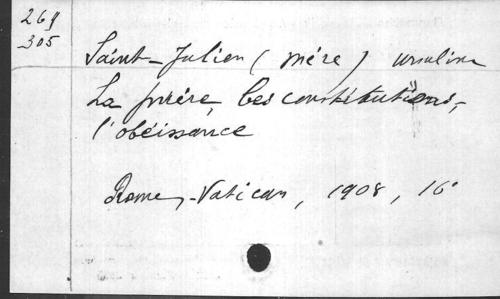 269
305
Saint-Julien (mère) ursuline
La prière, les constitutions,
l'obéissance
Rome, Vatican, 1908, 16°